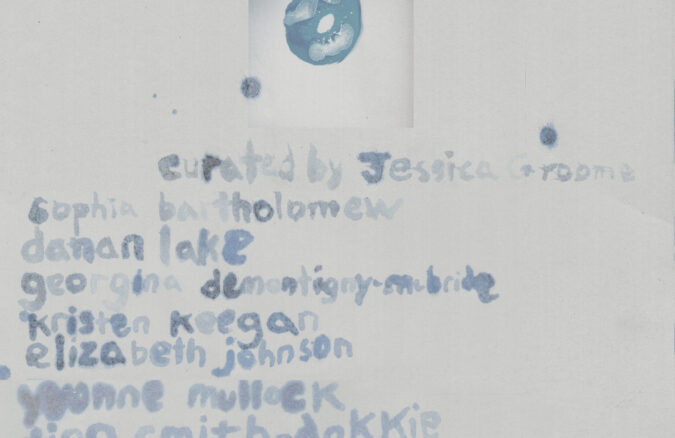 curated by Jessica Groome
sophia bartholomew
danan lake
georgina demontigny-mcbride
kristen keegan
elizabeth johnson
yvonne mullock
smith-dokkie